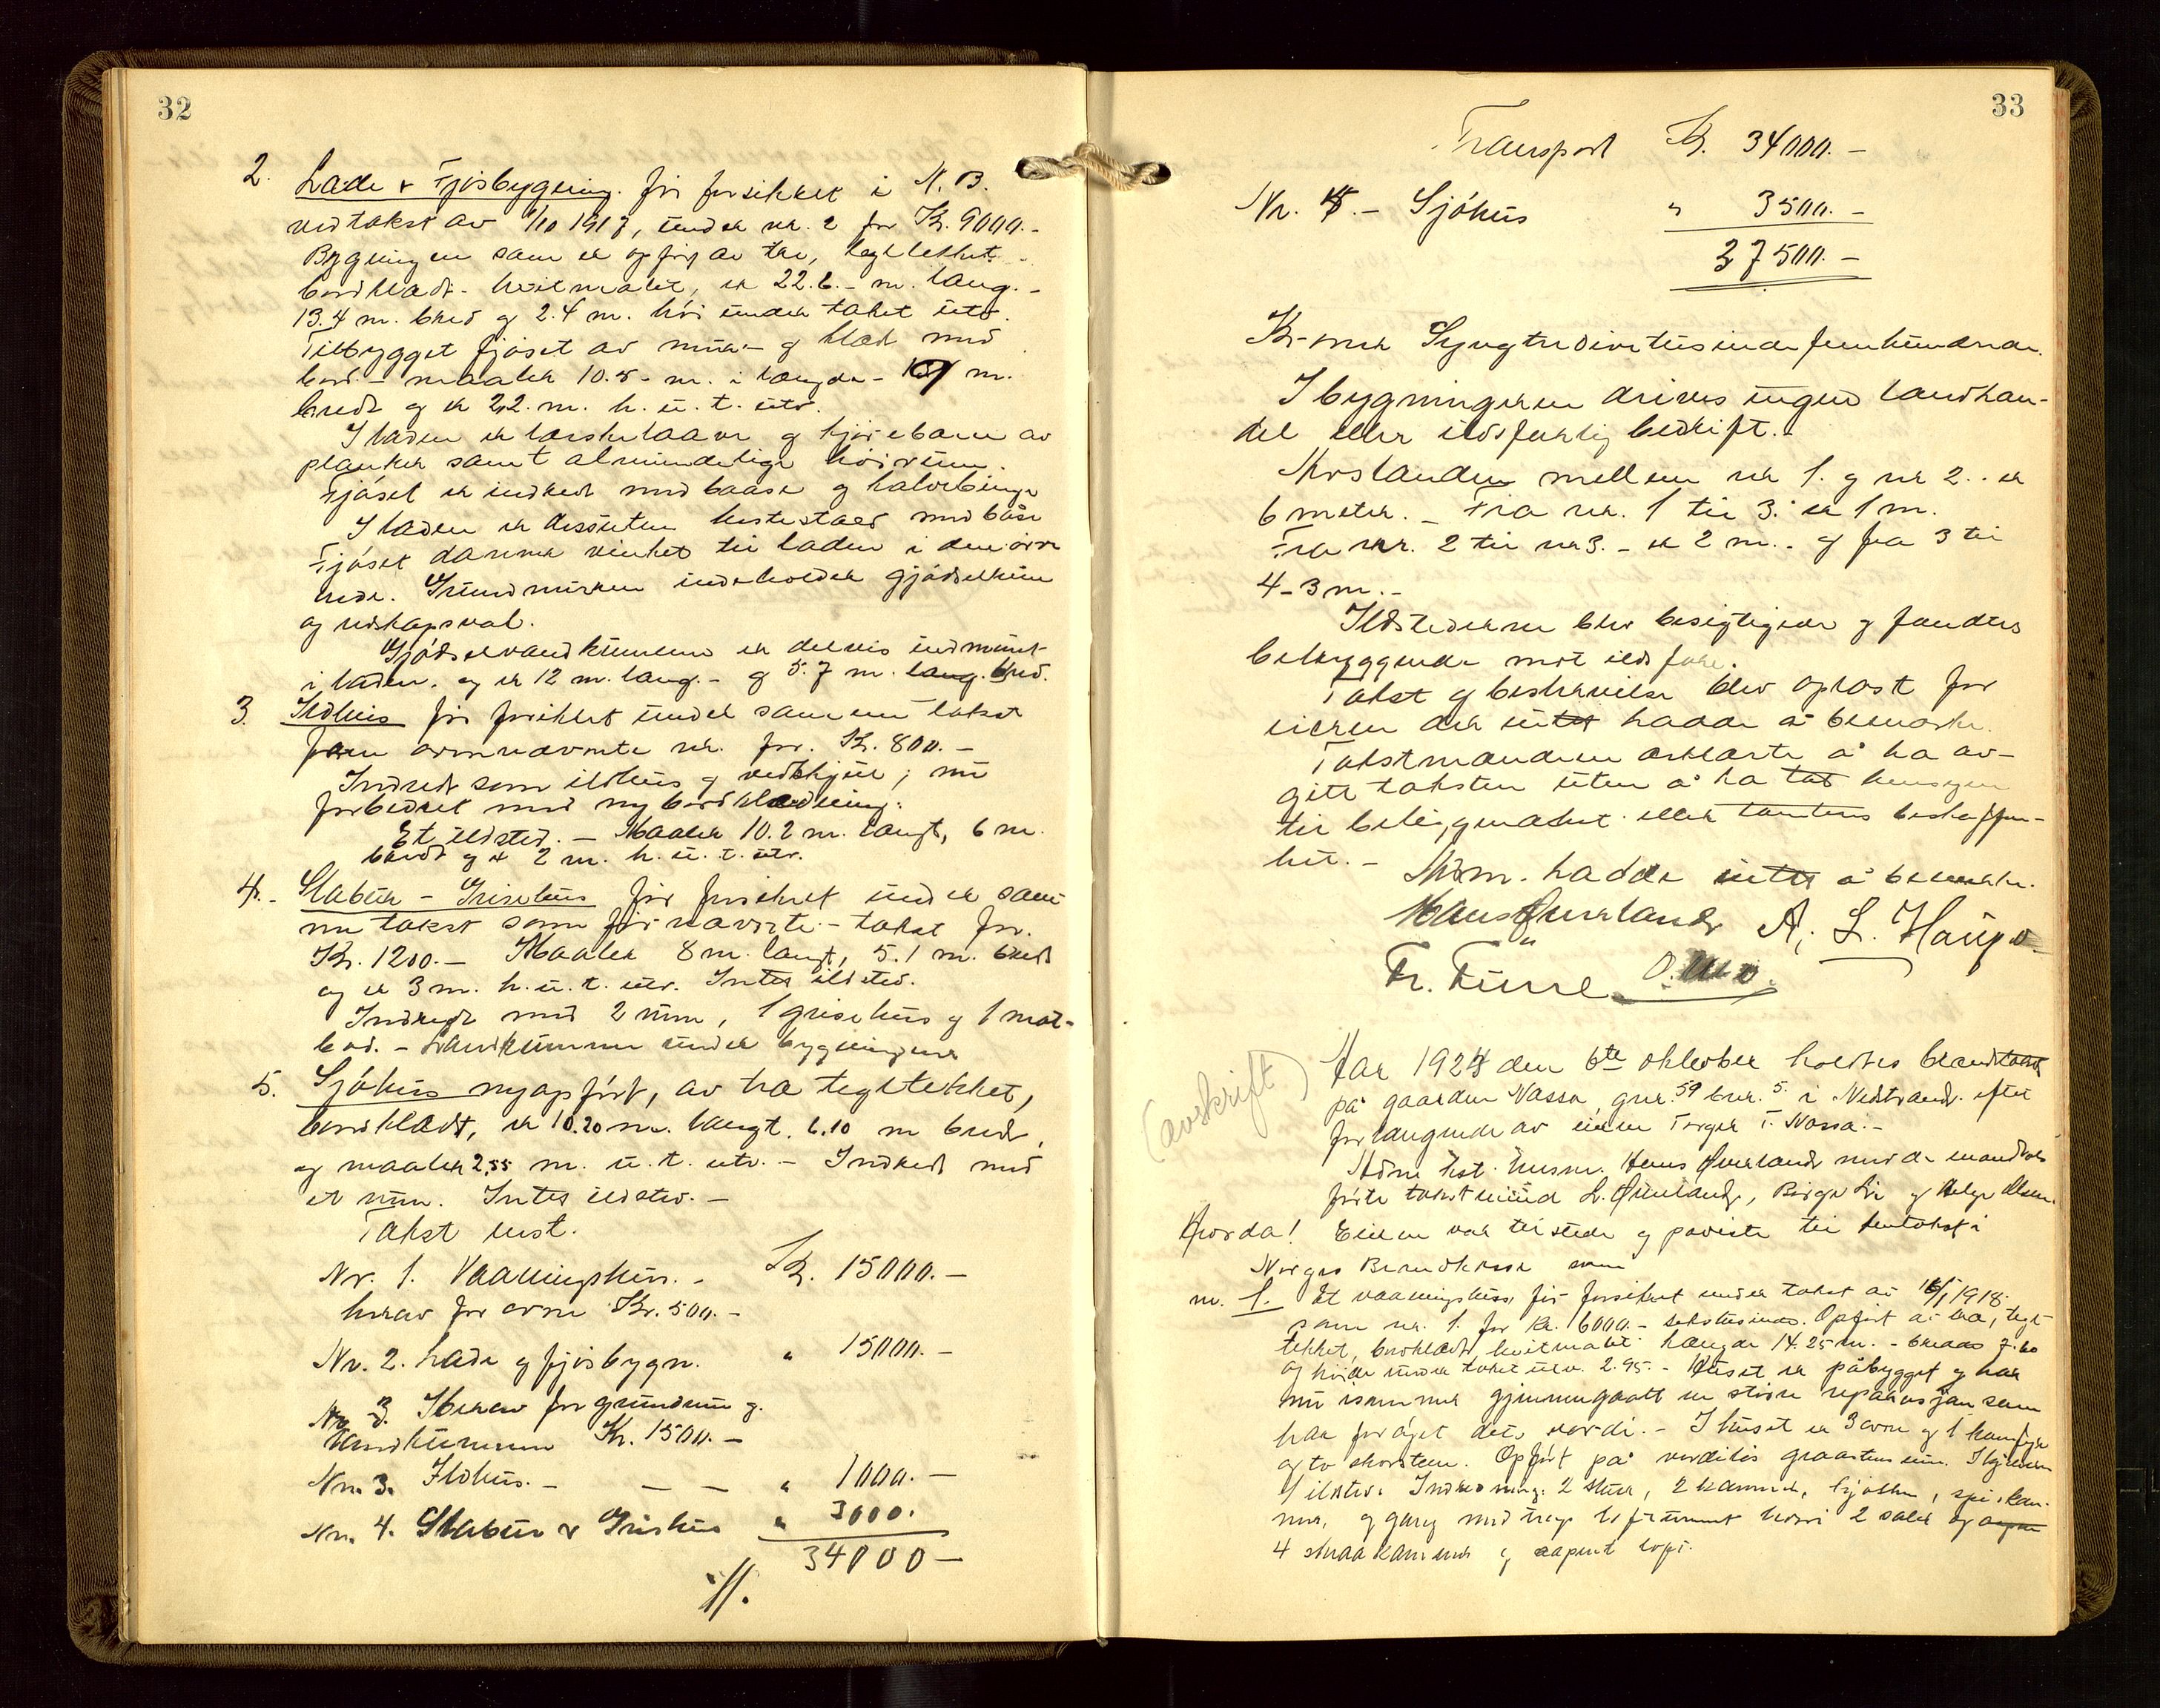 32
2. Lade & Fjösbygning. för forsikket i N.B.
ved takst av 1/10 1917, under nr. 2 for Kr. 9000.-
Bygningen som er opfört av træ, tegltekket.
bordklædt - hvitmalet, er 22.6.- m. lang.-
13.4 m. bred og 2.4 m. höi under taket utv.
Tilbygget fjöset av mur - og klædt med
bord.- maaler 10.5- m. i længde - m.
bredt og er 2,2. m. h. u. t. utv.
I laden er træskelaave og kjörebane av
planker samt almindelige höirum.
Fjöset er indredt med baase og kalvebinge
I laden er dessuten hestestald med baase
Fjöset danner vinkel til laden i den övre
ende. Grundmuren indeholder gjödselkum
og redskapsval.
Gjödselvandkummen er delvis indmuret
i laden. og er 12 m. lang.- og 5.7 m. lang. bred.
3. Ildhus för forsikket under samme takst
som ovennævnte nr. for. Kr. 800.-
Indredt som ildhus og vedskjul, nu
forbedret med ny bordklædning.
Et ildsted. - Maaler 10.2 m. langt, 6 m.
bredt og er 2 m. h. u. t. utv.
4.- Stabur - Grisehus för forsikret under sam-
me takst som för nævnte - takst for.
Kr. 1200.- Maaler 8 m. langt, 5.1 m. bredt
og er 3 m. h. u. t. utv. Intet ildsted.
Indredt med 2 rum, 1 grisehus og 1 mat-
bod. - Landkummen under bygningene
5. Sjöhus nyopfört, av træ tegltekket,
bordklædt, er 10.20 m. langt. 6.10 m bredt,
og maaler 2,55 m. u. t. utv. - Indredt med
et rum. Intet ildsted.-
Takst enst.
Nr. 1. Vaaningshus.- Kr. 15000.-
herav for ovne Kr. 500.-
Nr. 2. Lade og fjösbygn. " 15000.-
Herav for grundmur og
Vandkummen Kr. 1500.-
Nr. 3. Ildhus.- - - " 1000.-
Nr. 4. Stabur & Grishus " 3000.
34000-
./.
33
Transport Kr. 34000.-
Nr. 5.- Sjöhus " 3500.-
37500.-
Kr-oner Syvogtredivetusindefemhundrede.
I bygningerne drives ingen landhan-
del eller ildsfarlig bedrift.-
Avstanden mellem nr 1. og nr 2.. er
6 meter. - Fra nr. 1 til 3. er 1 m.
Fra nr. 2 til nr 3.- er 2 m.- og fra 3 til
4 - 3 m.-
Ildstederne blev besigtiget og fandtes
betryggende mot ildsfare.
Takst og beskrivelse blev oplæst for
eieren der intet hadde å bemærke.
Takstmændene erklærte å ha av-
gitt taksten uten å ha tat hensyn
til beliggenhet eller tomtens beskaffen-
het.-
Adm. hadde intet å bemerke.
Hans Querland A. L. Haugo
Fr. Furre O. Mo.
(avskrift.)
Aar 1924 den 6te oktober holdtes brandtakst
på gaarden Nassa, gnr. 59 bnr. 5. i Nedstrand. efter
forlangende av eieren Torger T. Nassa.-
Adm. Ast. lensm. Hans Querland med de
förte takstmænd L. Querland, Birger Lie og Helge Olsen.
Hvorda! Eieren var tilstede og paaviste til i
Norges Brandkasse som
nr. 1. Et vaaningshus för forsikret under takst av 1918
som nr. 1. for Kr. 6000.- sekstusinde. Opfört av træ, tegl-
tekket, bordklædt, hvitmalt længde 14.25 m. - bredde 7.60
og höide under taket utv. 2.95.- Huset er påbygget og har
nu isommer gjennemgaatt en större reparasjon som
har foröget dets verdi.- I huset er 3 ovne og 1 komfyr
og to skorsten. Opfört på verdilös graastensmur. I kjelderen
1 ildsted. Indredning: 2 stuer, 2 kammer, kjökken, spiskam-
mer, og gang med trap til 2 saler og
4 smaa kammer og aapent loft.